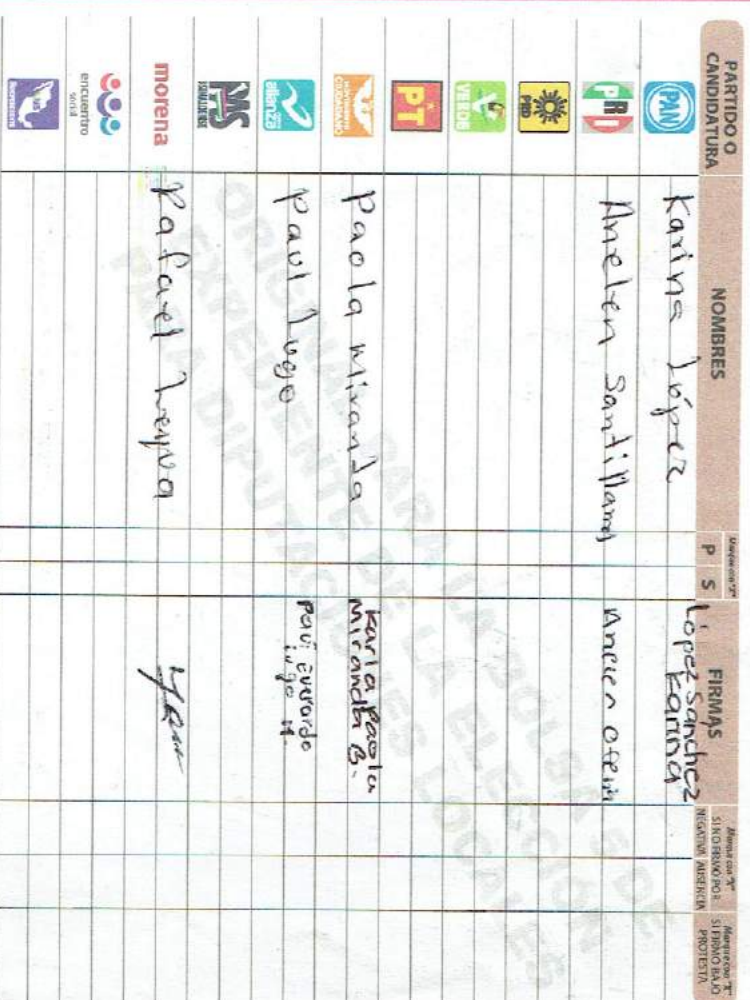 PARTIDO O
CANDIDATURA
NOMBRES
Marque con "X"
P S
FIRMAS
Marque con "X"
SI NO FIRMÓ POR
NEGATIVA AUSENCIA
Marque con "X"
SI FIRMÓ BAJO
PROTESTA
PAN Karina López López Sánchez
Karina
PRI Anelen Santillanes
PRD
VERDE
PT
MOVIMIENTO
CIUDADANO Paola Miranda Karla Paola
Miranda B.
alianza Paul Lugo Paul Everardo
Lugo M.
morena Rafael Leyva
encuentro
social
ORIGINAL PARA LA BOLSA DE
EXPEDIENTE DE LA ELECCIÓN
PARA DIPUTACIONES LOCALES